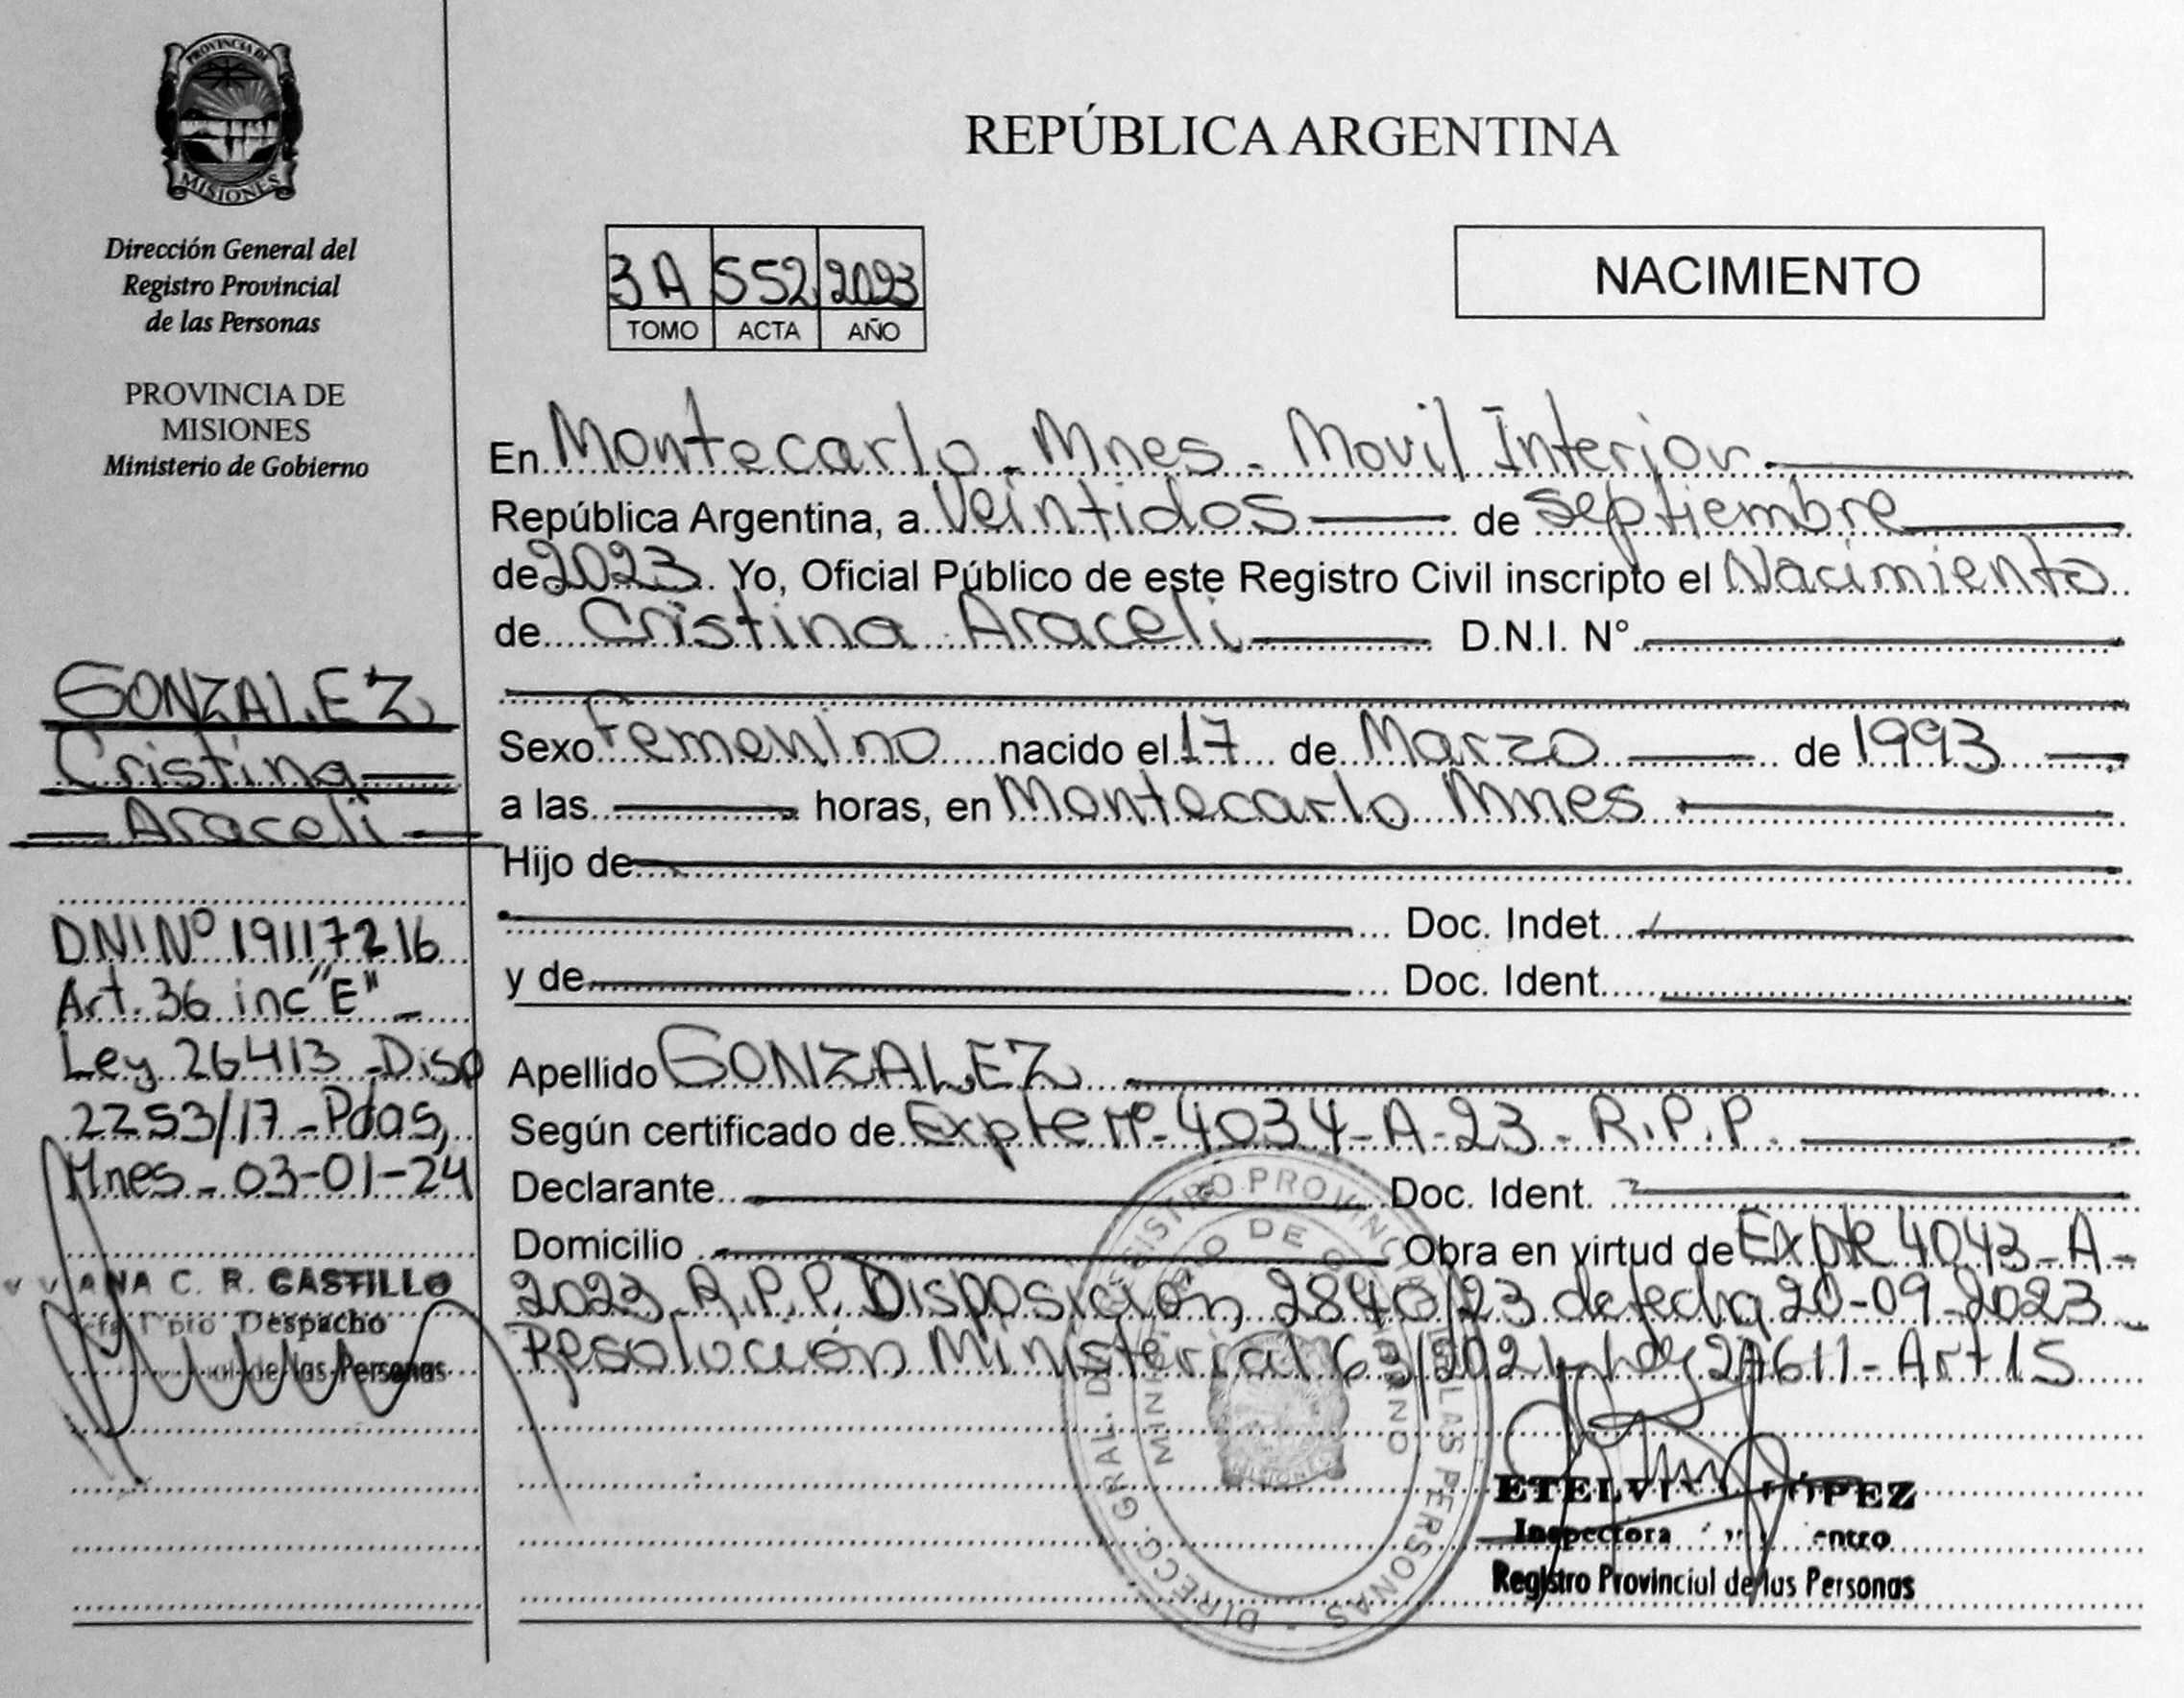 PROVINCIA DE
MISIONES
Dirección General del
Registro Provincial
de las Personas
PROVINCIA DE
MISIONES
Ministerio de Gobierno
GONZALEZ
Cristina
Araceli
DNI Nº 19117216
Art. 36 inc "E" -
Ley 26413 - Disp
2253/17 - Pdas,
Mnes - 03-01-24
ANA C. R. CASTILLO
Despacho
de las Personas
REPÚBLICA ARGENTINA
3A 552 2023
TOMO ACTA AÑO
NACIMIENTO
En Montecarlo - Mnes - Movil Interior
República Argentina, a Veintidos de septiembre
de 2023. Yo, Oficial Público de este Registro Civil inscripto el Nacimiento
de Cristina Araceli D.N.I. N°
Sexo Femenino nacido el 17 de Marzo de 1993
a las horas, en Montecarlo Mnes
Hijo de
Doc. Indet.
y de Doc. Ident.
Apellido GONZALEZ
Según certificado de Expte nº 4034-A-23-R.P.P.
Declarante Doc. Ident.
Domicilio Obra en virtud de Expte 4043-A-
2023-R.P.P. Disposición 2840/23 de fecha 20-09-2023
Resolución Ministerial /2021 Ley 27611-Art 15
DIRECC. GRAL. DEL REGISTRO PROVINCIAL DE LAS PERSONAS
MINISTERIO DE GOBIERNO
MISIONES
LÓPEZ
Inspectora
Registro Provincial de las Personas